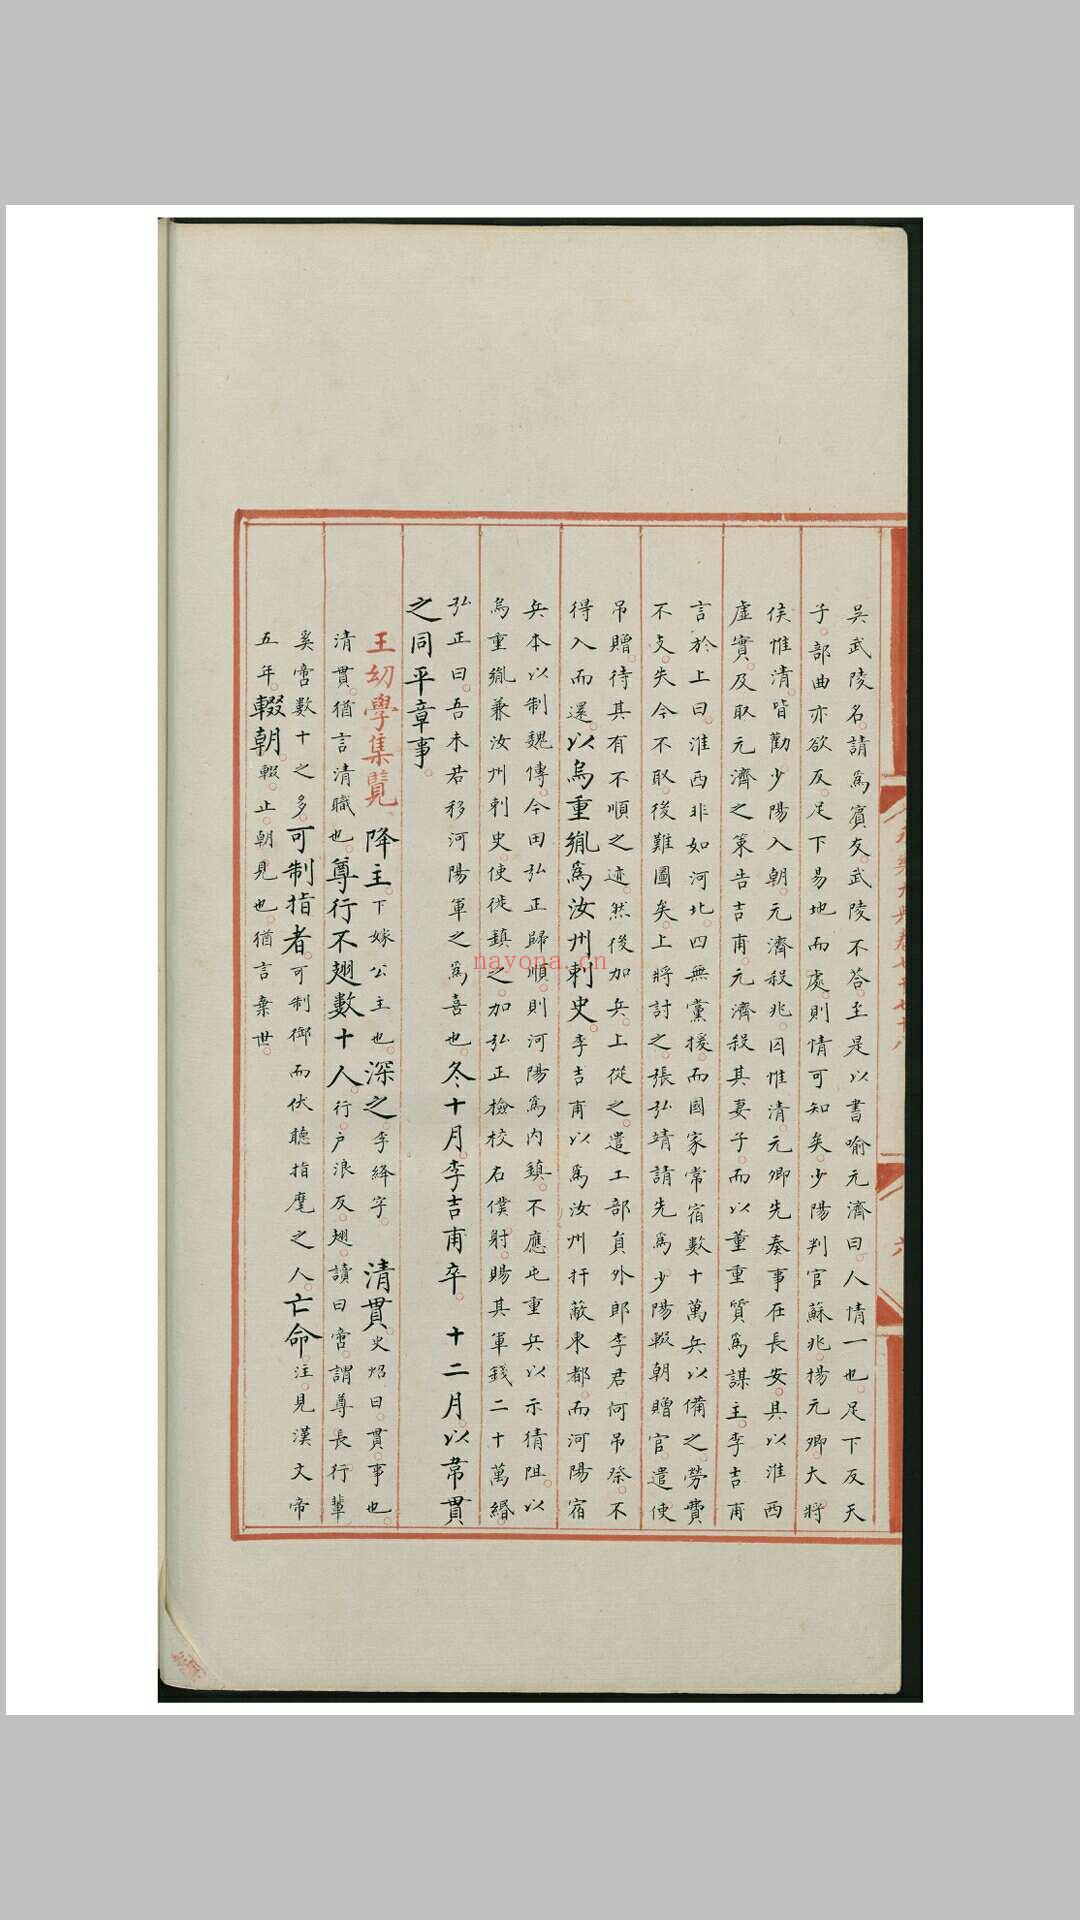 吳武陵名。請爲賓友。武陵不荅。至是以書喻元濟曰。人情一也。足下反天
子。部曲亦欲反。足下易地而處。則情可知矣。少陽判官蘇兆。揚元卿。大將
侯惟清。皆勸少陽入朝。元濟殺兆。囚惟清。元卿先奏事在長安。具以淮西
虛實。及取元濟之策告吉甫。元濟殺其妻子。而以董重質爲謀主。李吉甫
言於上曰。淮西非如河北。四無黨援。而國家常宿數十萬兵以備之。勞費
不支。失今不取。後難圖矣。上將討之。張弘靖請先爲少陽輟朝贈官。遣使
吊贈。待其有不順之迹。然後加兵。上從之。遣工部員外郎李君何吊祭。不
得入而還。以烏重𦙍爲汝州刺史。李吉甫以爲汝州扞蔽東都。而河陽宿
兵。本以制魏博。今田弘正歸順。則河陽爲内鎮。不應屯重兵以示猜阻。以
烏重𦙍兼汝州刺史。使徙鎮之。加弘正檢校右僕射。賜其軍錢二十萬緡。
弘正曰。吾未若移河陽軍之爲喜也。冬十月。李吉甫卒。 十二月。以韋貫
之同平章事。
王幼學集覽 降主。下嫁公主也。深之。李絳字。 清貫。史炤曰。貫。事也。
清貫。猶言清職也。尊行不翅數十人。行。户浪反。翅。讀曰啻。謂尊長行輩
奚啻數十之多。可制指者。可制御而伏聽指麾之人。亡命。注。見漢文帝
五年。輟朝。輟。止。朝見也。猶言棄世。
六
nayona.cn